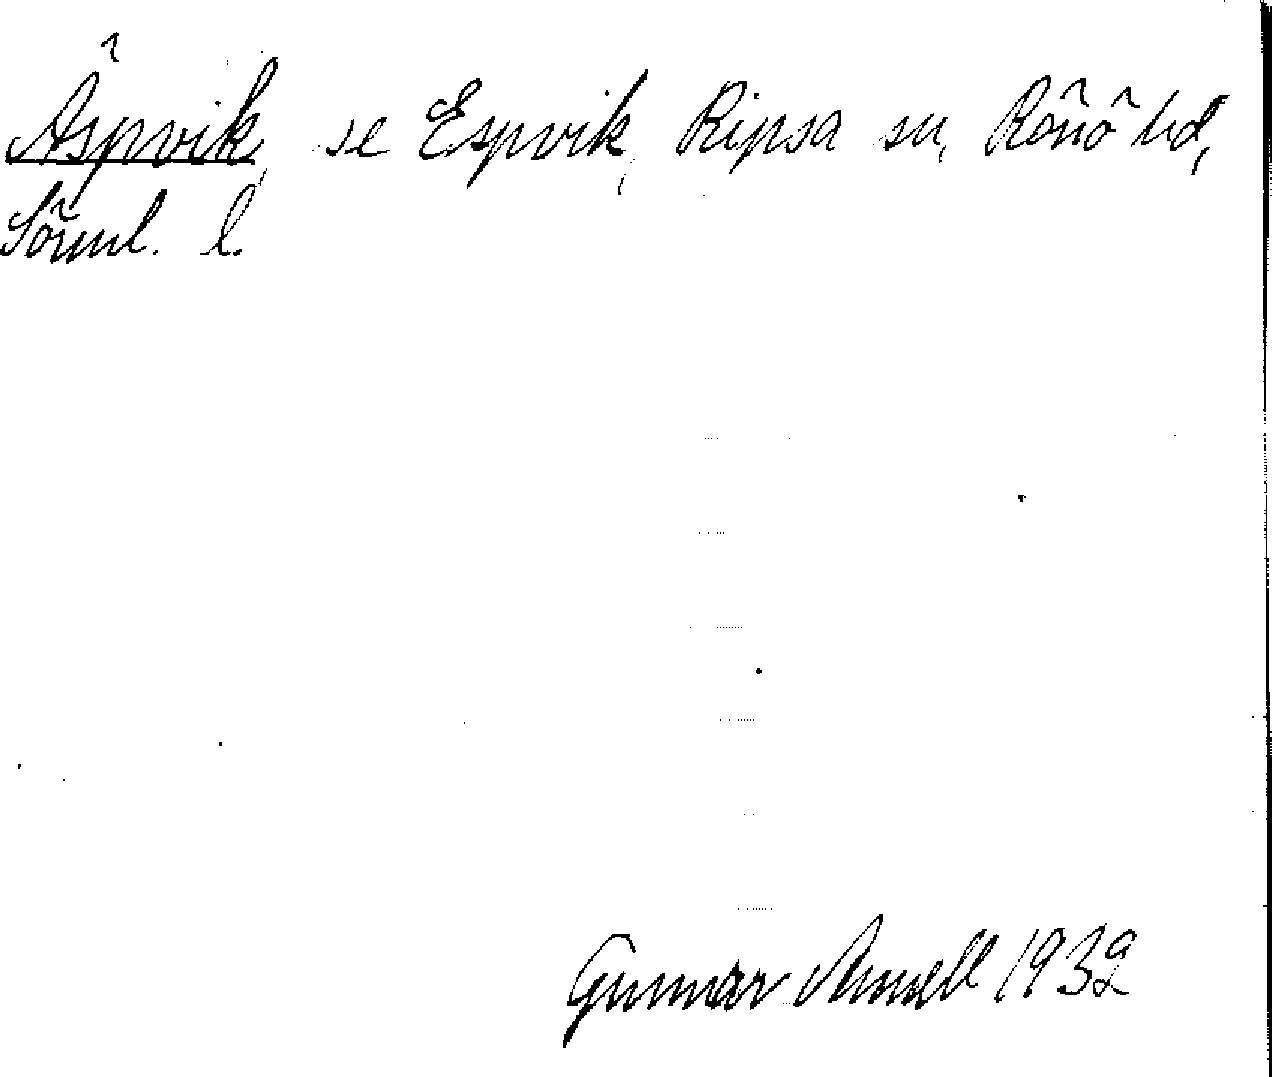 Äspvik, se Espvik, Ripsa sn, Rönö hd,
Sörml. l.
Gunnar Arnell 1932